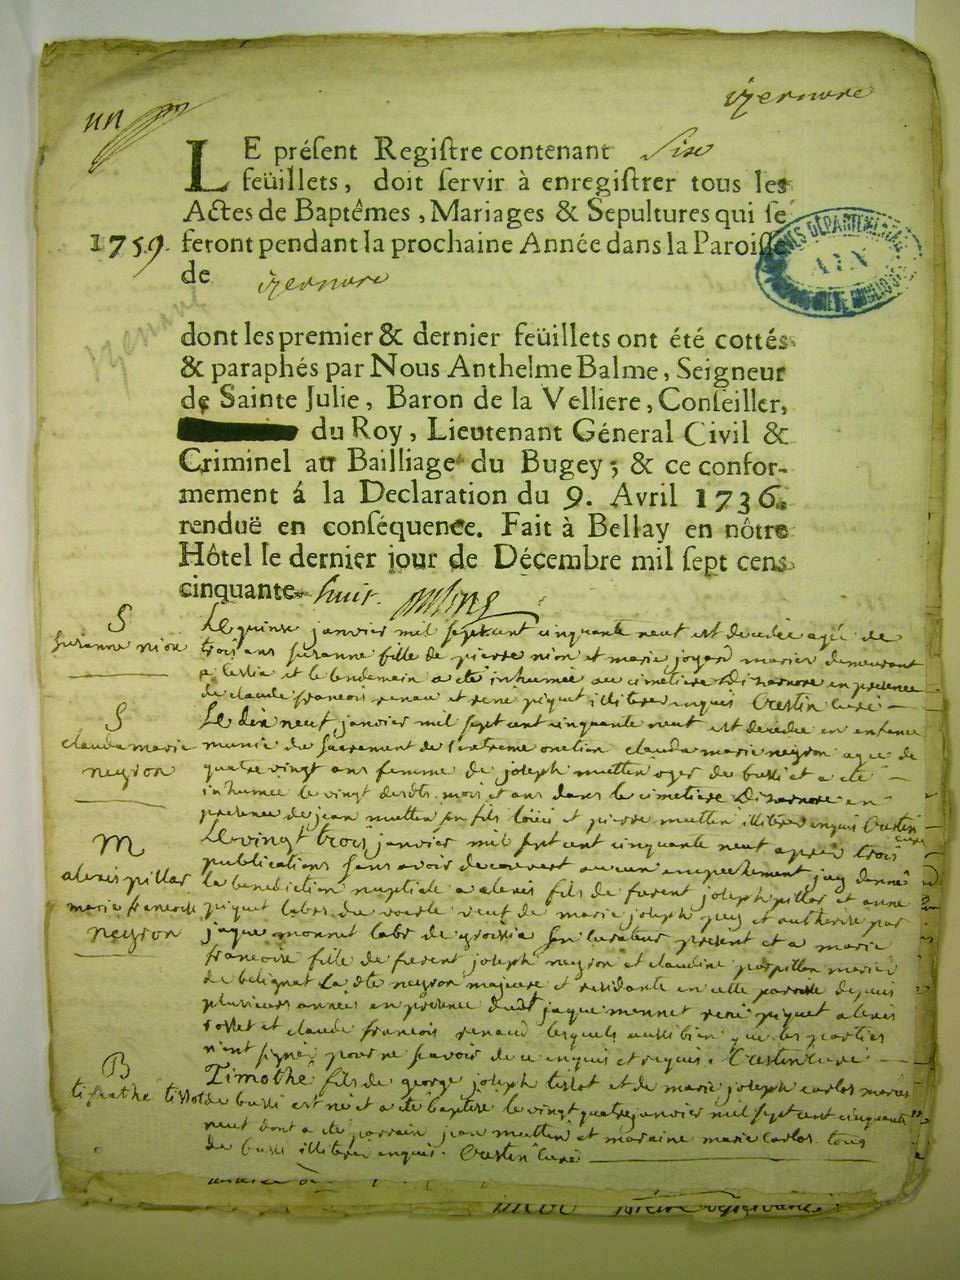 izernore
un
LE préſent Regiſtre contenant Six
feüillets, doit ſervir à enregiſtrer tous les
Actes de Baptêmes, Mariages & Sepultures qui ſe
1759. feront pendant la prochaine Année dans la Paroiſſe
de izernore
ARCHIVES DÉPARTEMENTALES
AIN
Izernore
dont les premier & dernier feüillets ont été cottés
& paraphés par Nous Anthelme Balme, Seigneur
de Sainte Julie, Baron de la Velliere, Conſeiller,
du Roy, Lieutenant Géneral Civil &
Criminel au Bailliage du Bugey; & ce confor-
mement á la Declaration du 9. Avril 1736.
renduë en conſéquence. Fait à Bellay en nôtre
Hôtel le dernier jour de Décembre mil ſept cens
cinquante huit.
S
Suzanne nion
Le quinse janvier mil sept cent cinquante neuf est decedée agée de
trois ans suzanne fille de pierre nion et marie joyard mariés demeurant
a et le lendemain a eté inhumée au cimétiere Dizarnore en presence
de claude francois renau et rené piquet illiteres enquis Crestin curé
S
clauda marie
neyron
Le dix neuf janvier mil sept cent cinquante neuf est decedée en enfance
munie du sacrement de l'extreme onction clauda marie neyron agée de
quatre vingt ans femme de joseph mutten de bussi et a eté
inhumée le vingt desdts mois et ans dans le cimetiere Dizarnore en
presence de jean mutten son fils et pierre mutten illiteres enquis Crestin
curé
M
alexis pillar
marie francoise
neyron
Le vingt trois janvier mil sept cent cinquante neuf après trois
publications sans avoir decouvert aucun empechement j'ay donné
la benediction nuptiale a alexis fils de furent joseph pillar et anne
piquet labr. du veuf de marie joseph puy et authorisé par
jaque monnet labr de son curateur present et a marie
francoise fille de furent joseph neyron et claudine mariés
de belignat la dte neyron majeure et residante en cette paroisse depuis
plusieurs années en presence dudt jaque monnet rené piquet alexis
et claude francois renaud lesquels aussi bien que les parties
n'ont signé pour ne scavoir de ce enquis et requis. Crestin curé
B
timothé tissot
Timothé fils de george joseph tissot et de marie joseph carlos mariés
de bussi est né et a eté baptisé le vingt quatre janvier mil sept cent cinquante
neuf dont a eté parrain jean mutten et maraine marie carlos tous
de bussi illiteres enquis. Crestin curé